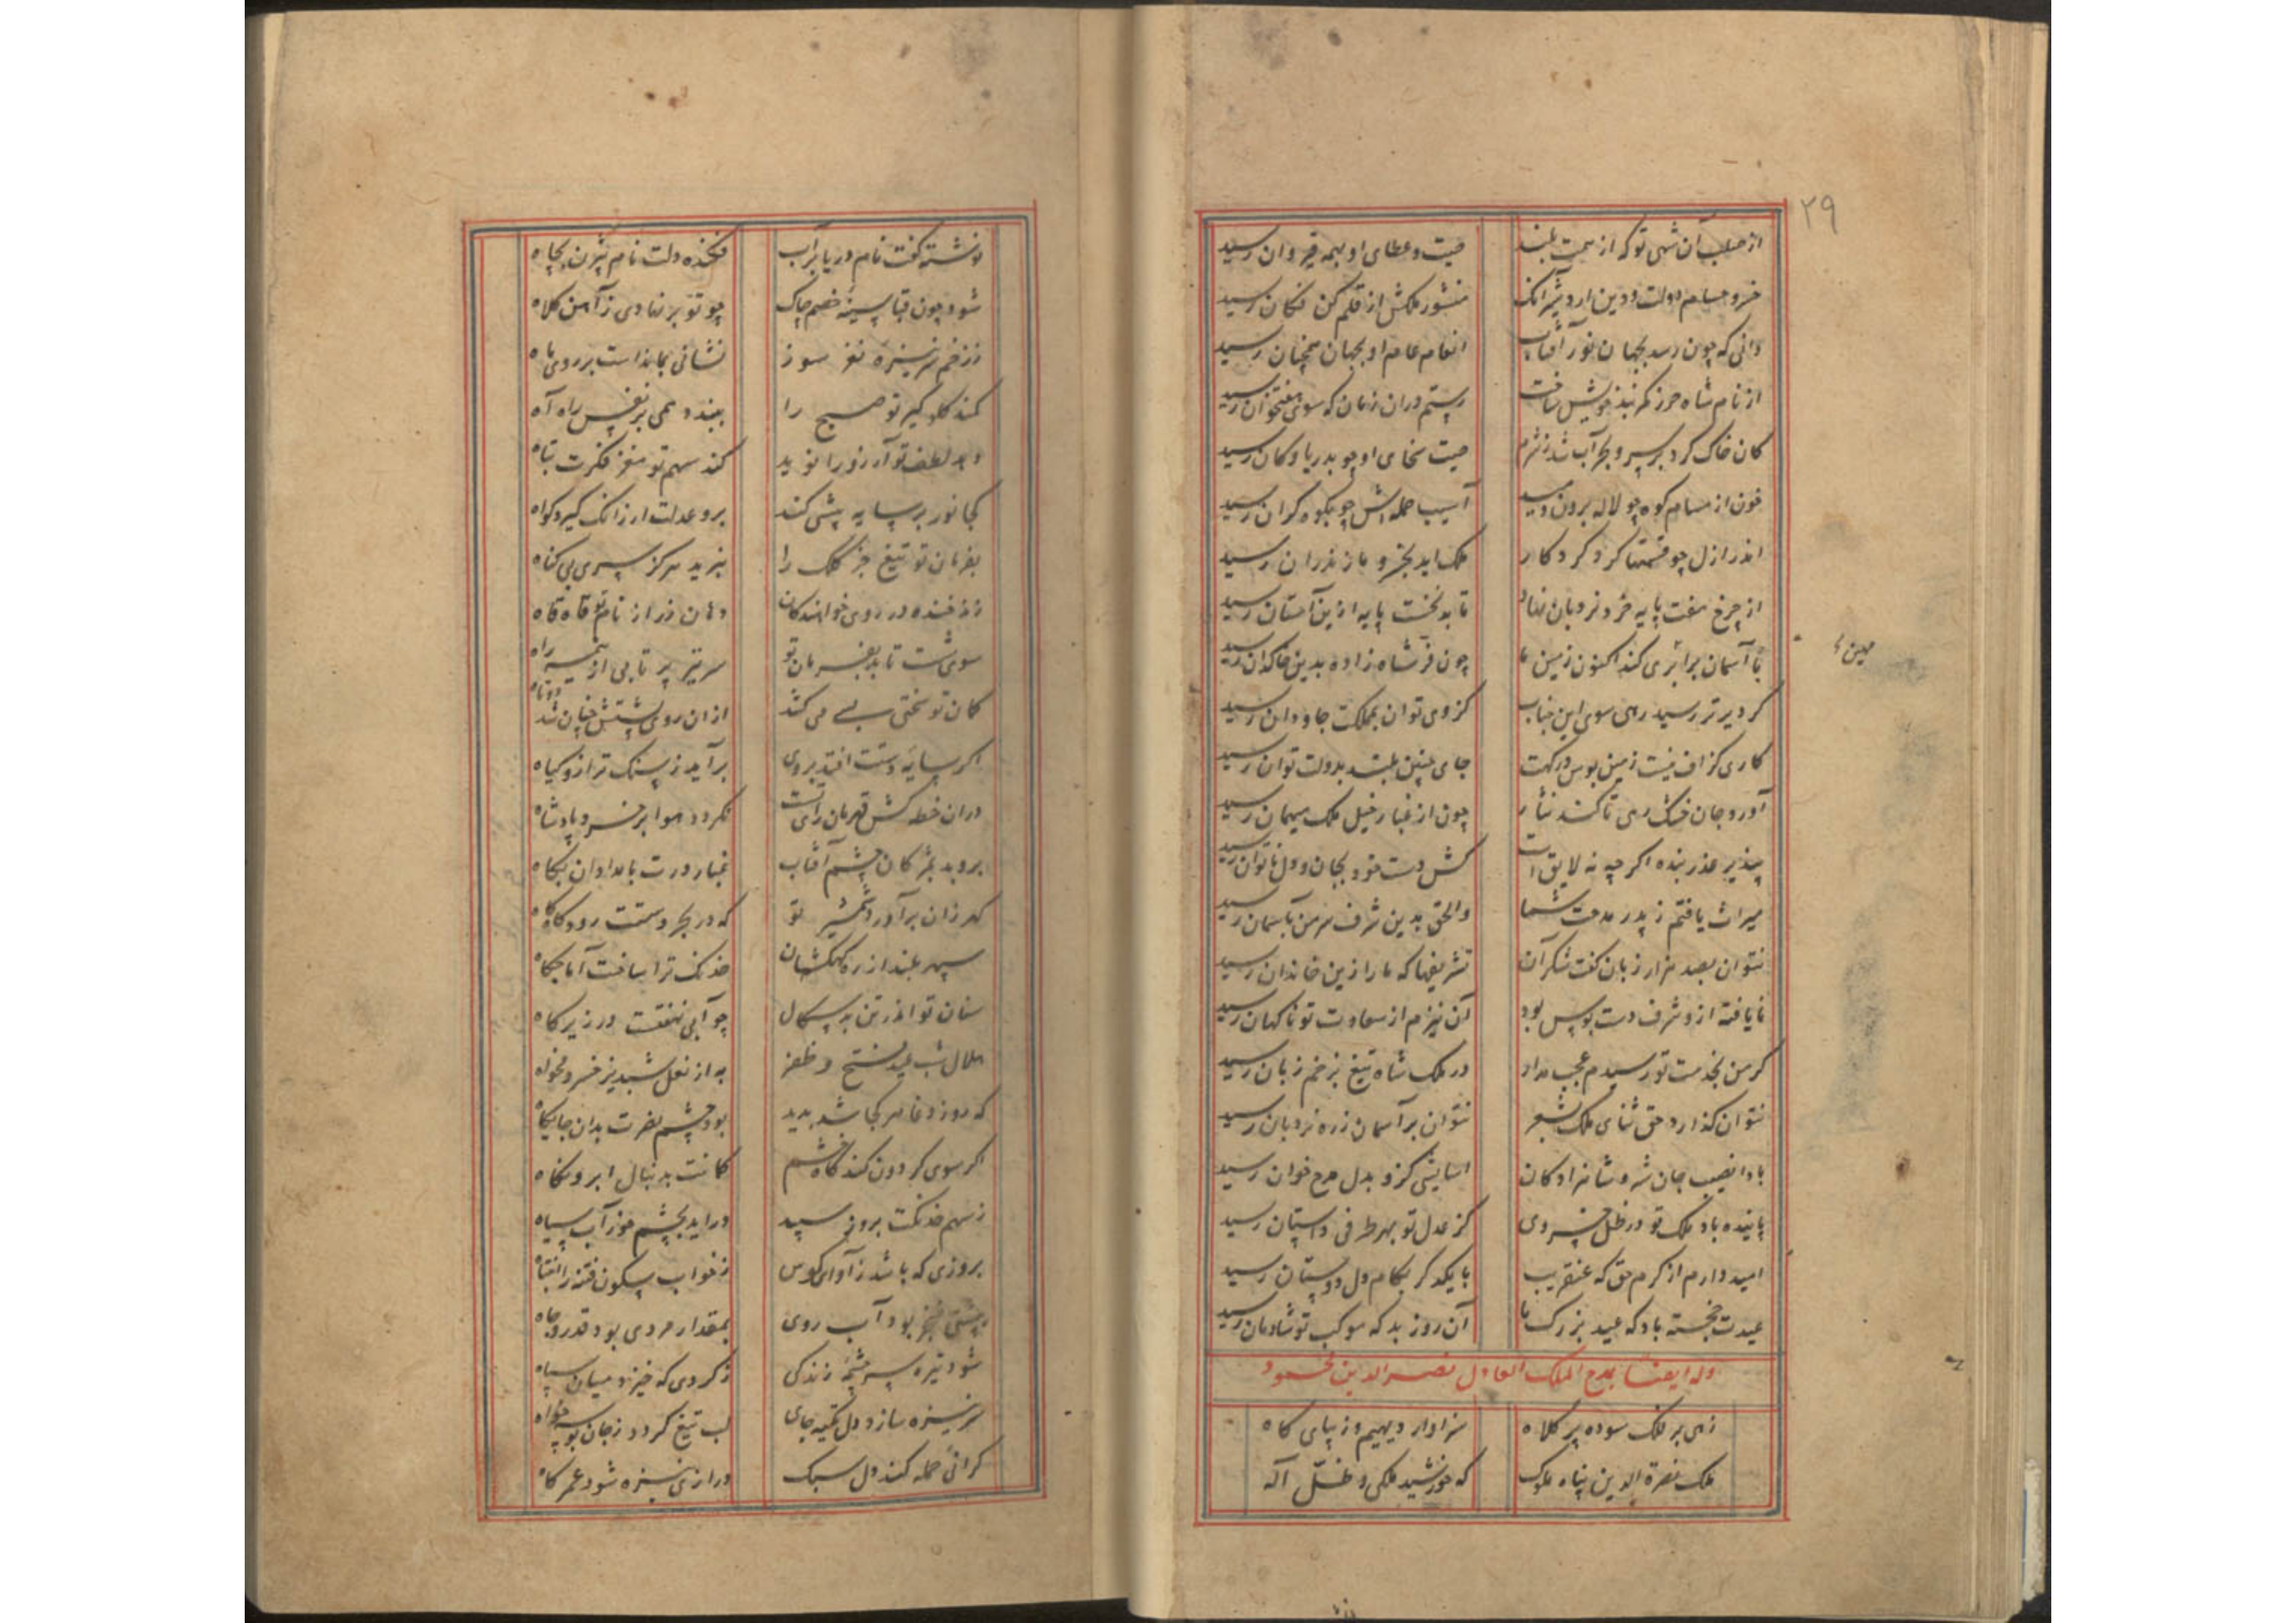 ۲۹
از صلب آن شهی تو که از همت بلند
صیت و عطای او بهمه قیروان رسید
خسرو حسام دولت و دین اردشیر آنک
منشور ملکش از قلم کن فکان رسید
دانی که چون رسد بجهان نور آفتاب
انعام عام او بجهان همچنان رسید
از نام شاه حرز کمربند خویش ساخت
رستم دران زمان که سوی هفتخوان رسید
کان خاک کرد بر سر و بحر آب شد ز شرم
صیت سخای او چو بدریا و کان رسید
خون از مسام کوه چو لاله برون دمید
آسیب حمله اش چو بکوه کران رسید
اندر ازل چو قسمتها کرد کردکار
ملک ابد بخسرو مازندران رسید
از چرخ هفت پایه خرد نردبان نهاد
تا بدنخست پایه ازین آستان رسید
با آسمان برابری کند اکنون زمین ما
چون فر شاه زاده بدین خاکدان رسید
کر دیرتر رسید رهی سوی این جناب
کز وی توان بمملکت جاودان رسید
کاری کزاف نیست زمین بوس درکهت
جای چنین بلند بدولت توان رسید
آورد جان خشک رهی تا کند نثار
چون از غبار خیل ملک سیهمان رسید
بپذیر عذر بنده اکر چه نه لایق است
کش دست مزد بجان و دل ناتوان رسید
میراث یافتم ز پدر مدحت شما
والحق بدین شرف سر من باسمان رسید
نتوان بصد هزار زبان کفت شکر آن
تشریفها که ما را زین خاندان رسید
نایافته از و شرف دست بوس بود
آن نیزم از سعادت تو ناکهان رسید
کر من بخدمت تو رسیدم عجب مدار
در ملک شاه تیغ بزخم زبان رسید
نتوان کذارد حق ثنای ملک بشعر
نتوان بر آسمان ز ره نردبان رسید
بادا نصیب جان شه و شاهزادکان
اسایشی کزو بدل مدح خوان رسید
پاینده باد ملک تو در ظل خسروی
کز عدل تو بهر طرفی داستان رسید
امیدوارم از کرم حق که عنقریب
با یکدکر بکام دل دوستان رسید
عیدت خجسته باد که عید بزرک ما
آن روز بد که موکب تو شادمان رسید
وله ایضا بمدح الملک العادل نصرالدین محمود
زهی بر فلک سوده پر کلاه
سزاوار دیهیم و زیبای کاه
ملک نصرة الدین پناه ملوک
که خورشید ملکی و ظل اله
مین ء
نوشته کفت نام دریا بر آب
فکنده دلت نام بیژن بچاه
شود چون قبا سینه خصم چاک
چو تو بر نهادی ز آهن کلاه
ز زخم سر نیزه نغز سوز
نشانی بماندست بر روی ماه
کند کلو کیر تو صبح را
ببندد همی بر نفس راه آه
دهد لطف تو آرزو را نوید
کند سهم تو مغز فکرت تباه
کجا نور بر سایه پیشی کند
برو عدلت ار زانک کیرد کواه
بفرمان تو تیغ جز کلک را
نبرید هرکز سری بی کناه
زند خنده در روی خوانندکان
دهان زر از نام تو قاه قاه
سوی شست تا بد بفرمان تو
سر تیر پر تابی از نیمه راه
کمان تو سختی بسی می کشد
ازان روی پشتش چنان شد دوتاه
اکر سایه دستت افتد بروی
برآید ز سنک ترازو کیاه
دران خطه کش قهرمان رای تست
نکردد هوا بر خسرو پادشاه
بروبد بمژکان چشم آفتاب
غبار درت بامدادان پکاه
کهر زان برآورد شمشیر تو
که در بحر دستت رود کاه کاه
سپهر بلند از ره کهکشان
خدنک ترا ساخت آماجکاه
سنان تو اندر تن بدسکال
چو آبی نهفتست در زیر کاه
هلال شب عید فتح و ظفر
به از نعل شبدیز خسرو مخواه
که روز وغا هر کجا شد پدید
بود چشم نصرت بدان جایکاه
اکر سوی کردون کند کاه خشم
کمانت بدنبال ابرو نکاه
ز سهم خدنکت بروز سپید
دراید بچشم خور آب سیاه
بروزی که باشد ز آوای کوس
ز خواب سکون فتنه را انتباه
بپشتی خنجر بود آب روی
بمقدار مردی بود قدر و جاه
شود تیره سرچشمه زندکی
ز کردی که خیزد میان سپاه
سر نیزه سازد دل تکیه جای
لب تیغ کردد ز جان بوسه خواه
کرانی حمله کند دل سبک
درازی نیزه شود عمر کاه